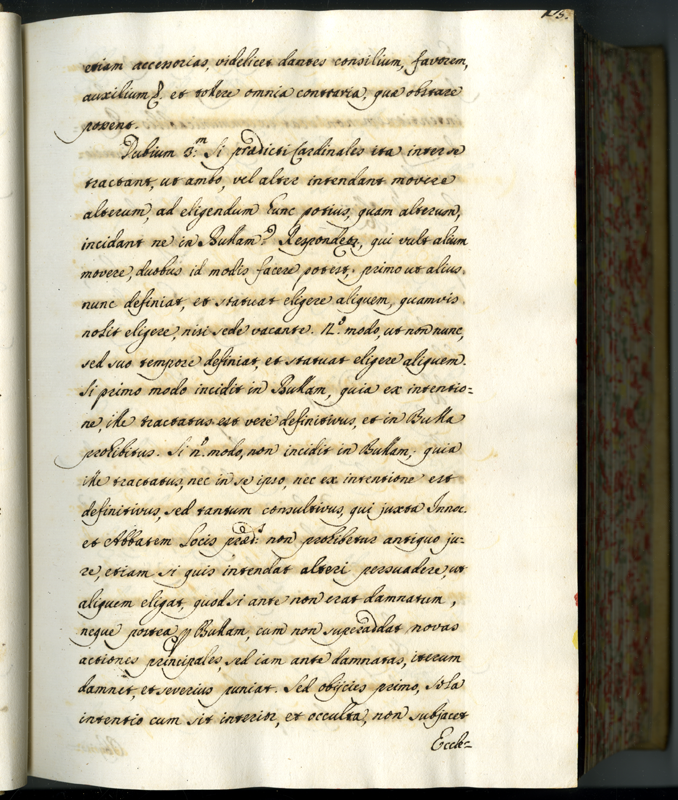 etiam accessorias, videlicet dantes consilium, favorem,
auxilium &. et tollere omnia contraria, quæ obstare
possent.
Dubium 3.m Si prædicti Cardinales ita inter se
tractant, ut ambo, vel alter intendant movere
alterum, ad eligendum hunc potius, quam alterum,
incidant ne in Bullam? Respondetr, qui vult alium
movere, duobus id modis facere potest; primo ut alius
nunc definiat, et statuat eligere aliquem, quamvis
nolit eligere, nisi sede vacante. 2.o modo, ut non nunc,
sed suo tempore definiat, et statuat eligere aliquem.
Si primo modo incidit in Bullam, quia ex intentio=
ne, ille tractatus est vere definitivus, et in Bulla
prohibitus. Si 2.o modo, non incidit in Bullam; quia
ille tractatus, nec in se ipso, nec ex intentione est
definitivus, sed tantum consultivus, qui juxta Innoc.
et Abbatem locis præd.s non prohibetur antiquo ju=
re, etiam si quis intendat alteri persuadere, ut
aliquem eligat, quod si ante non erat damnatum,
neque postea Bullam, cum non superaddat novas
actiones principales, sed iam ante damnatas, iterum
damnet, et severius puniat. Sed obijcies primo, Sola
intentio cum sit interior, et occulta, non subjacet
Eccle=